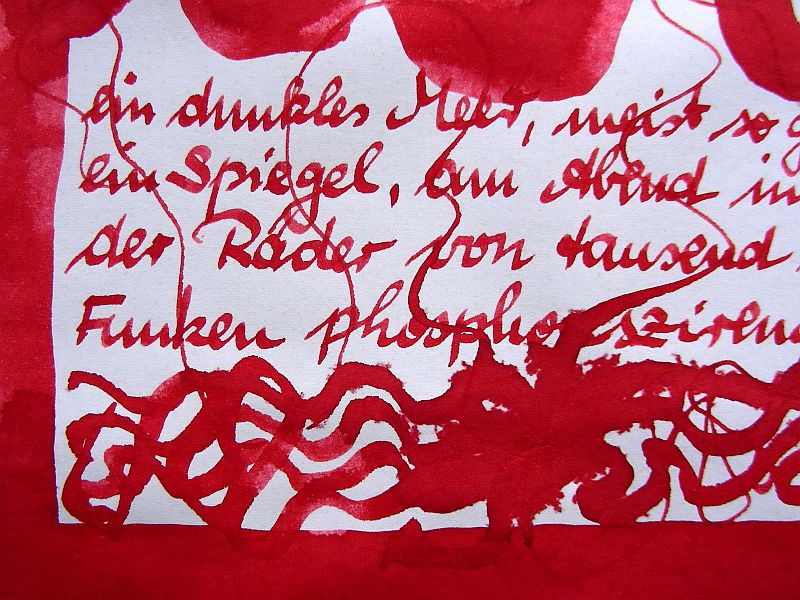 ein dunkles Meer, meist so g
ein Spiegel, am Abend im
der Räder von tausend
Funken phosphoreszirend